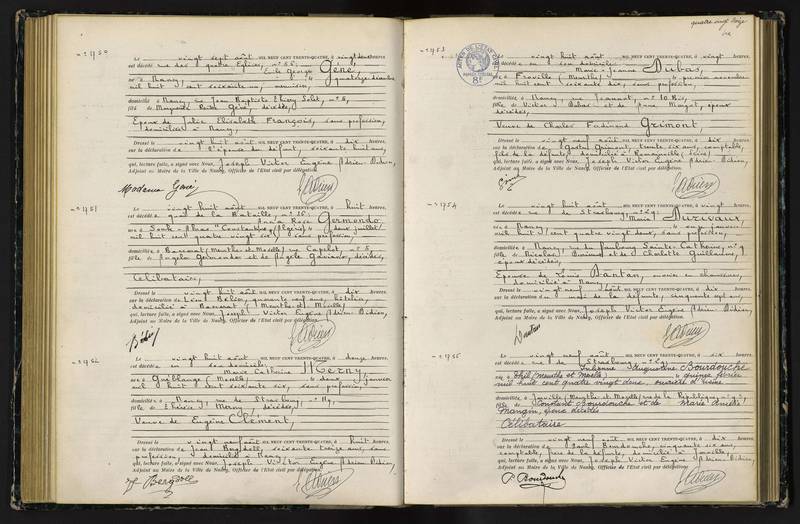 n° 1750
Le vingt sept août MIL NEUF CENT TRENTE-QUATRE, à vingt deux heures,
est décédé rue des quatre Eglises, n° 56:
Emile Georges Géné,
né à Nancy, le quatorze décembre
mil huit cent soixante un, menuisier,
domicilié à Nancy, rue Jean Baptiste Thiery Solet, n° 5,
fils de Marguerite Rosalie Géné, décédée,
Epoux de Julie Elisabeth François, sans profession,
domiciliée à Nancy,
Dressé le vingt huit août MIL NEUF CENT TRENTE-QUATRE, à huit heures,
sur la déclaration de l'épouse du défunt, soixante huit ans,
qui, lecture faite, a signé avec Nous, Joseph Victor Eugène Adrien Bidien,
Adjoint au Maire de la Ville de Nancy, Officier de l'Etat civil par délégation.
Madame Géné
n° 1751
Le vingt huit août MIL NEUF CENT TRENTE-QUATRE, à heures,
est décédée quai de la Bataille, n° 16:
Anna Rose Germondo
née à Constantine (Algérie) le deux juillet
mil huit cent quatre vingt six, sans profession,
domiciliée à Baccarat (Meurthe et Moselle) rue Capelot, n° 5,
fille de Angelo Germondo et de Angèle décédés,
Célibataire,
Dressé le vingt huit août MIL NEUF CENT TRENTE-QUATRE, à dix heures,
sur la déclaration de Léon quarante neuf ans, hôtelier,
domicilié à Baccarat (Meurthe et Moselle)
qui, lecture faite, a signé avec Nous, Joseph Victor Eugène Adrien Bidien,
Adjoint au Maire de la Ville de Nancy, Officier de l'Etat civil par délégation.
n° 1752
Le vingt huit août MIL NEUF CENT TRENTE-QUATRE, à douze heures,
est décédée en son domicile,
Marie Catherine Merny,
née à Guéblange (Moselle) le deux janvier
mil huit cent soixante six, sans profession,
domiciliée à Nancy, rue de Strasbourg, n° 114,
fille de Thérèse Merny, décédée,
Veuve de Eugène Clément,
Dressé le vingt neuf août MIL NEUF CENT TRENTE-QUATRE, à huit heures,
sur la déclaration de Jean soixante treize ans, sans
profession, domicilié à Nancy
qui, lecture faite, a signé avec Nous, Joseph Victor Eugène Adrien Bidien,
Adjoint au Maire de la Ville de Nancy, Officier de l'Etat civil par délégation.
quatre vingt
n° 1753
Le vingt huit août MIL NEUF CENT TRENTE-QUATRE, à vingt heures,
est décédée en son domicile
Marie Jeanne Dubas,
née à Froville (Meurthe) le premier novembre
mil huit cent soixante dix, sans profession,
domiciliée à Nancy, rue Jeannot, n° 10 Bis,
fille de Victor Dubas et de Anne Margot, époux
décédés,
Veuve de Charles Ferdinand Grimont,
Dressé le vingt neuf août MIL NEUF CENT TRENTE-QUATRE, à dix heures,
sur la déclaration de Gaston Grimont, trente six ans, comptable,
fils de la défunte, domicilié à Romainville (Seine)
qui, lecture faite, a signé avec Nous, Joseph Victor Eugène Adrien Bidien,
Adjoint au Maire de la Ville de Nancy, Officier de l'Etat civil par délégation.
n° 1754
Le vingt huit août MIL NEUF CENT TRENTE-QUATRE, à vingt heures,
est décédée rue de Strasbourg, n° 69:
née à Nancy, le janvier
mil huit cent quatre vingt deux, sans profession,
domiciliée à Nancy, rue du Faubourg Sainte-Catherine, n° 9
fille de Nicolas et de Charlotte Guillaume,
époux décédés,
Epouse de Louis Dantan, ouvrier en chaussures,
domicilié à Nancy,
Dressé le vingt neuf août MIL NEUF CENT TRENTE-QUATRE, à dix heures,
sur la déclaration du mari de la défunte, cinquante sept ans,
qui, lecture faite, a signé avec Nous, Joseph Victor Eugène Adrien Bidien,
Adjoint au Maire de la Ville de Nancy, Officier de l'Etat civil par délégation.
Dantan
n° 1755
Le vingt neuf août MIL NEUF CENT TRENTE-QUATRE, à six heures,
est décédée rue de Strasbourg, n° 69:
Julienne Augustine Bourdouche
née à Thil (Meurthe et Moselle) le quinze février
mil huit cent quatre vingt deux, ouvrière d'usine
domiciliée à Joeuf (Meurthe et Moselle) rue de la République, n°
fille de Constant Bourdouche et de Marie Amélie
Mangin, époux décédés
Célibataire
Dressé le vingt neuf août MIL NEUF CENT TRENTE-QUATRE, à dix heures,
sur la déclaration de Paul Bourdouche, cinquante six ans,
comptable, frère de la défunte, domicilié à
qui, lecture faite, a signé avec Nous, Joseph Victor Eugène Adrien Bidien,
Adjoint au Maire de la Ville de Nancy, Officier de l'Etat civil par délégation.
P Bourdouche